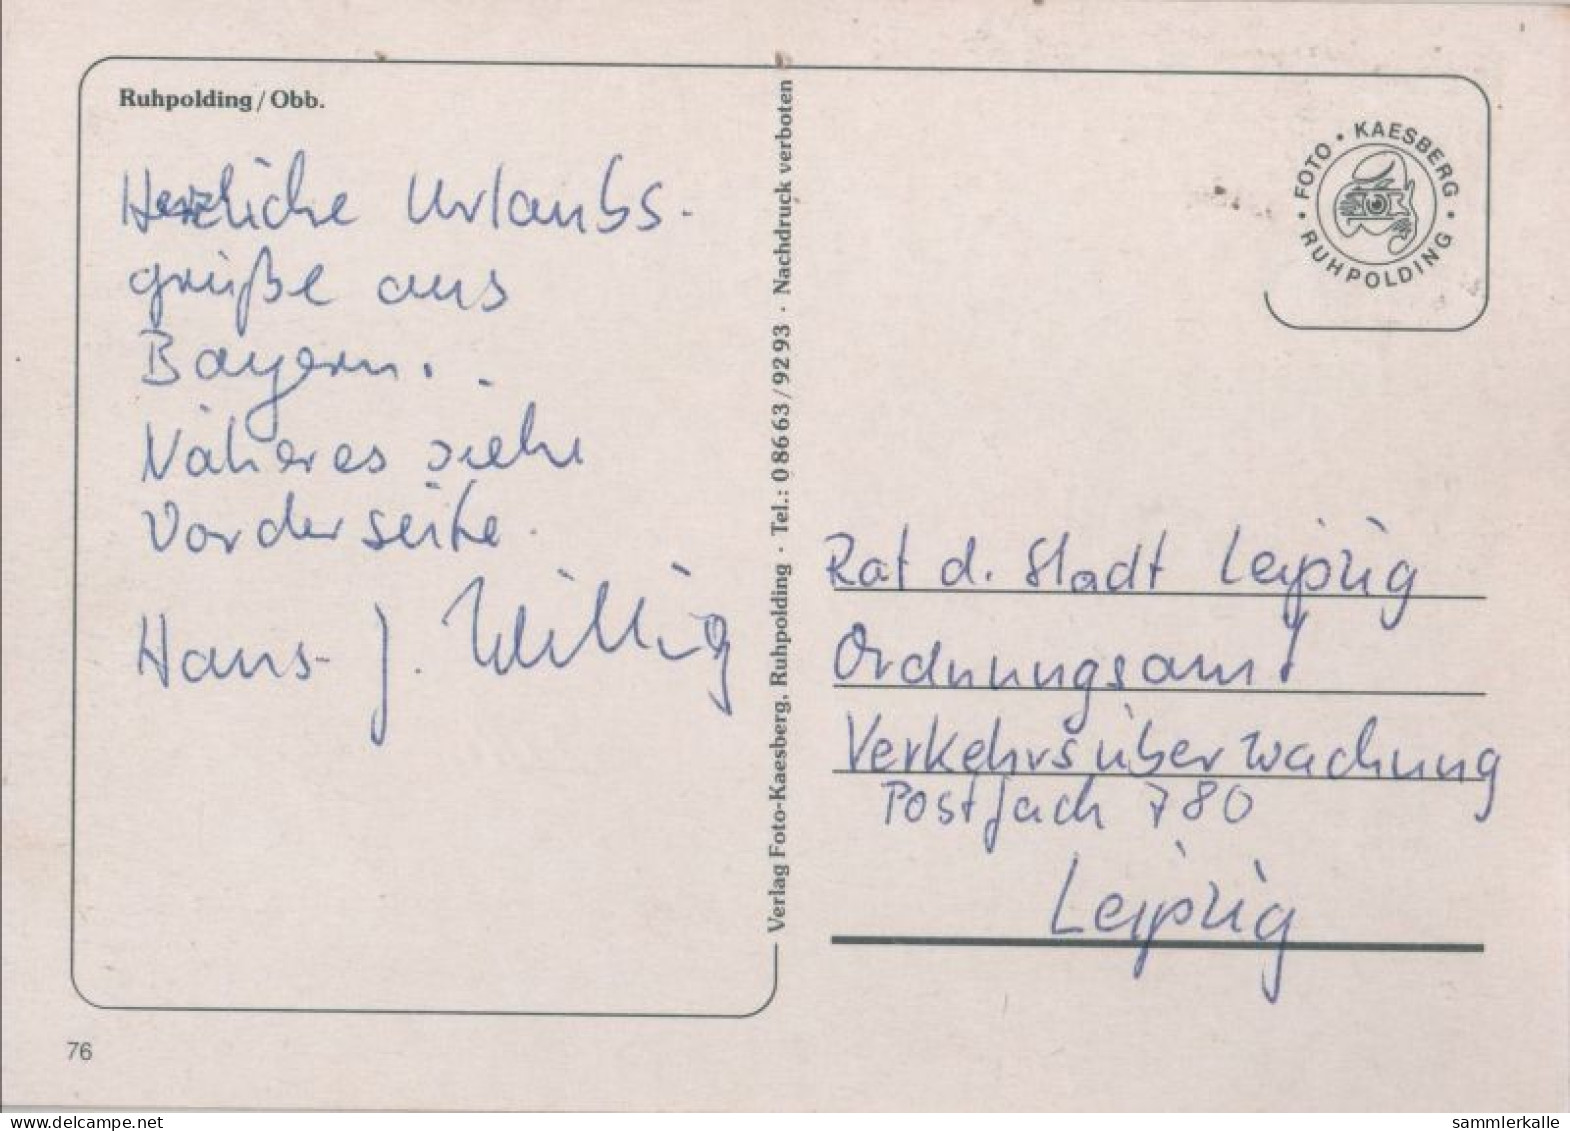 Ruhpolding / Obb.
Herzliche Urlaubs-
grüße aus
Bayern.
Näheres siehe
Vorderseite.
Hans-J. Willig
76
Verlag Foto-Kaesberg, Ruhpolding · Tel.: 0 86 63 / 92 93 · Nachdruck verboten
• FOTO • KAESBERG •
RUHPOLDING
Rat d. Stadt Leipzig
Ordnungsamt
Verkehrsüberwachung
Postfach 780
Leipzig
www.delcampe.net
sammlerkalle